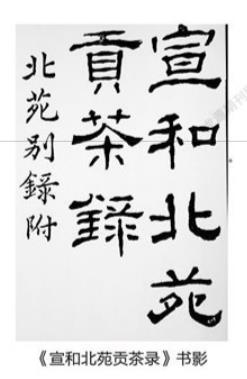 宣和北苑
貢茶錄
北苑別錄附
《宣和北苑贡茶录》书影